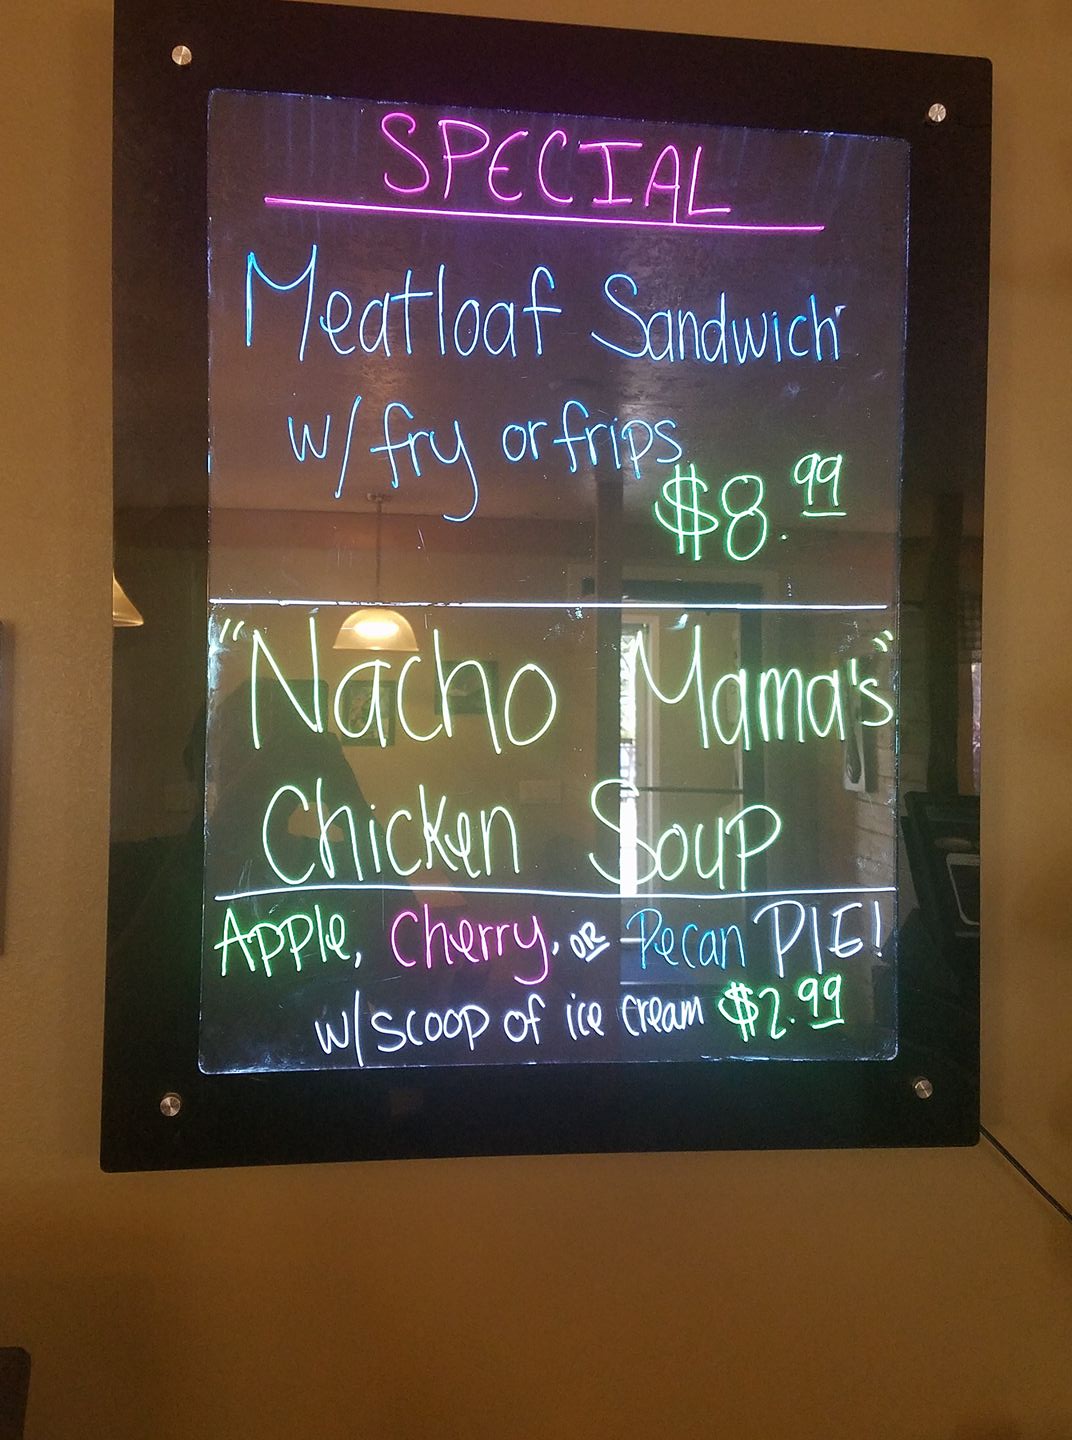 SPECIAL
Meatloaf Sandwich
w/ fry or frips
$8.99
"Nacho Mama's"
Chicken Soup
Apple, Cherry, OR Pecan PIE!
w/ scoop of ice cream $2.99